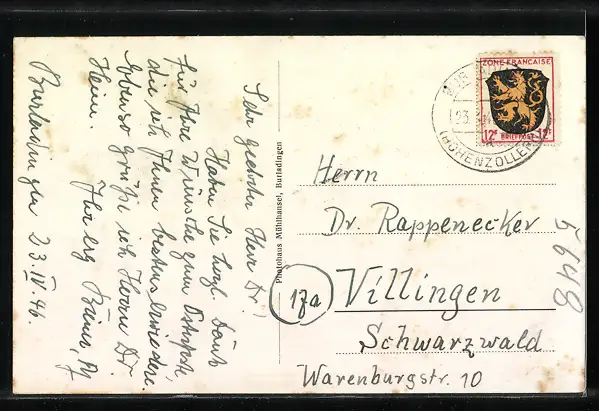 Sehr geehrter Herr Dr!
Haben Sie herzl. Dank
für Ihre Wünsche zum Osterfeste,
die ich Ihnen bestens erwidere.
Ebenso grüße ich Herrn Dr.
Heim.
Ihr erg.
Burladingen 23.IV.46.
Photohaus Mühlhansel, Burladingen
ZONE FRANÇAISE
12 BRIEFPOST 12
23.
(HOHENZOLLERN)
Herrn
Dr. Rappenecker
17a
Villingen
Schwarzwald
Warenburgstr. 10
5648